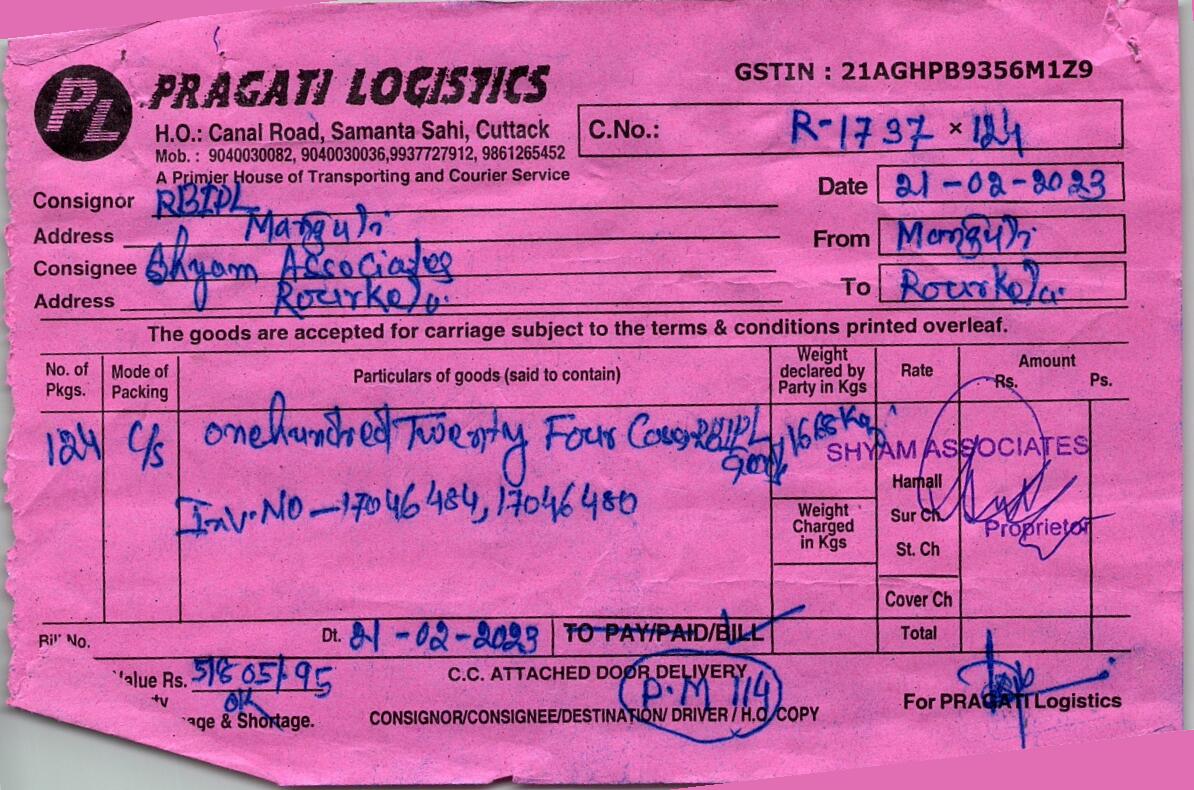 PL PRAGATI LOGISTICS
GSTIN : 21AGHPB9356M1Z9
H.O.: Canal Road, Samanta Sahi, Cuttack
Mob. : 9040030082, 9040030036,9937727912, 9861265452
A Primier House of Transporting and Courier Service
C.No.: R-1737 × 124
Date 21-02-2023
Consignor RBIPL
Address Manguli
From Manguli
Consignee Shyam Associates
Address Rourkela.
To Rourkela.
The goods are accepted for carriage subject to the terms & conditions printed overleaf.
No. of Pkgs. Mode of Packing Particulars of goods (said to contain) Weight declared by Party in Kgs Rate Amount Rs. Ps.
124 C/s one hundred Twenty Four RBIPL
SHYAM ASSOCIATES
Hamall
Inv. NO - 17046484, 17046480
Weight Charged in Kgs
Sur Ch
Proprietor
St. Ch
Cover Ch
No. Dt. 21-02-2023 TO PAY/PAID/BILL Total
alue Rs. 51805/.95 C.C. ATTACHED DOOR DELIVERY
P.M 114
ok
age & Shortage. CONSIGNOR/CONSIGNEE/DESTINATION/ DRIVER / H.O. COPY
For PRAGATI Logistics